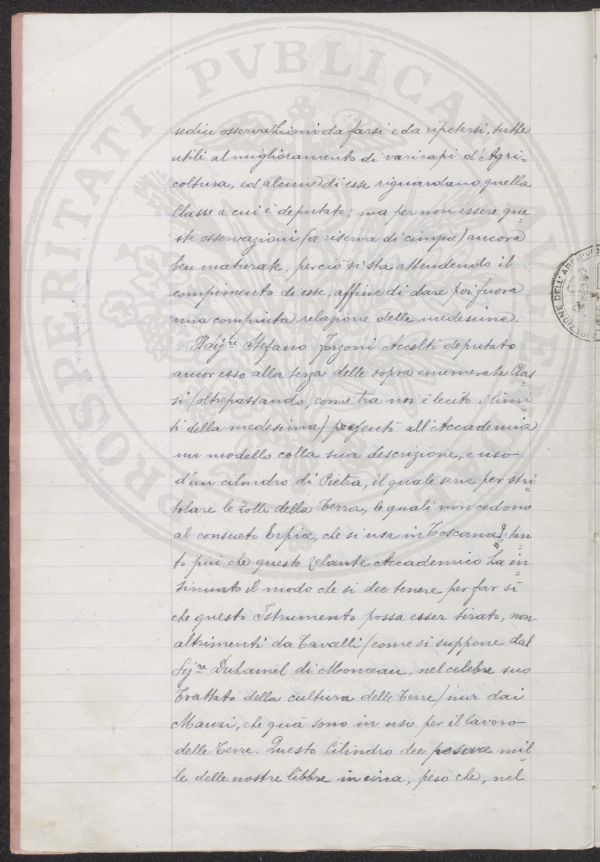 PROSPERITATI PVBLICAE AVGENDAE
sedici osservazioni da farsi e da ripetersi, tutte
utili al miglioramento di varj capi d'Agri=
coltura, ed alcune di esse riguardano quella
Classe a cui è deputato; ma per non essere que=
ste osservazioni (a riserva di cinque) ancora
ben maturate, perciò si sta attendendo il
compimento di esse, affine di dare poi fuora
una compiuta relazione delle medesime.
Il Sig.re Stefano Accolti deputato
ancor esso alla terza delle sopra enumerate Clas=
si (oltrepassando, come tra noi è lecito i limi=
ti della medesima) presentò all'Accademia
un modello colla sua descrizione, e uso
d'un cilindro di Pietra, il quale serve per stri=
tolare le zolle della Terra, le quali non cedono
al consueto Erpice, che si usa in Toscana; tan=
to più che questo zelante Accademico ha in=
sinuato il modo che si dee tenere per far sì
che questo Istrumento possa esser tirato, non
altrimenti da Cavalli (come si suppone dal
Sig.re Duhamel di Monceau, nel celebre suo
Trattato della cultura delle Terre) mà dai
Manzi, che quà sono in uso per il lavoro
delle Terre. Questo Cilindro dee pesare mil=
le delle nostre libbre in circa, peso che, nel